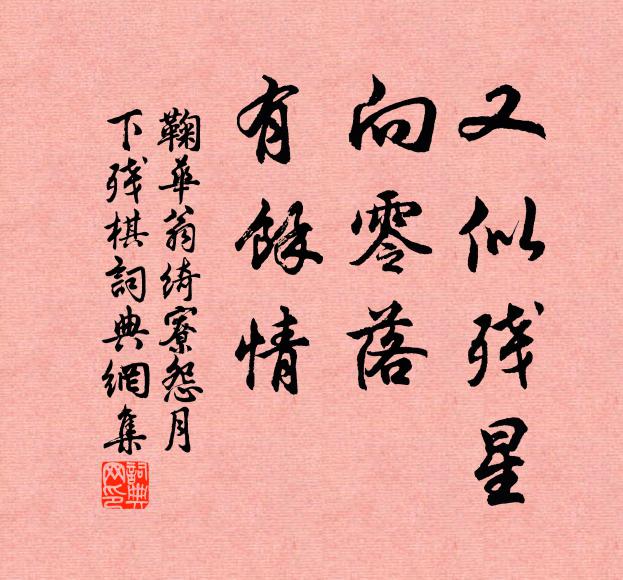 又似残星
向零落
有馀情
鞠华翁绮寮怨月
下残棋詞典網集
詞典网印